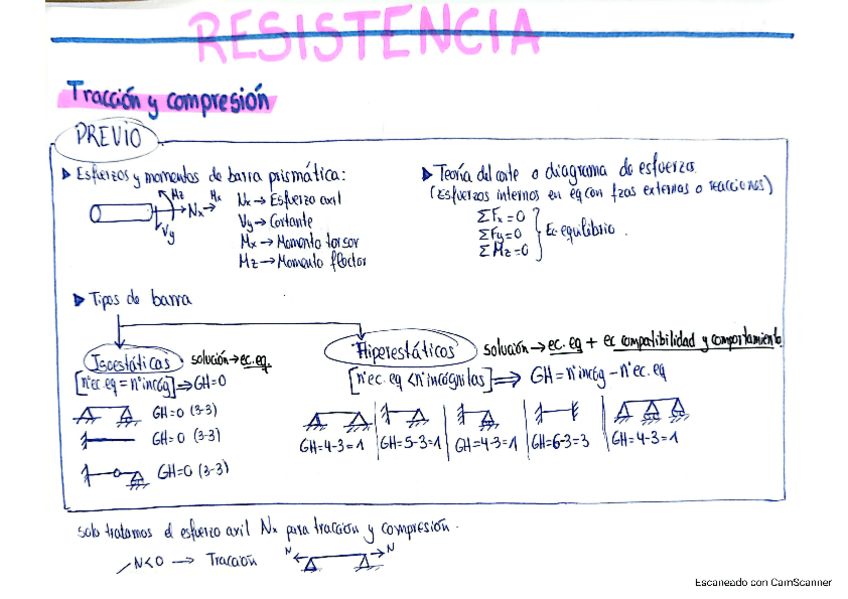 RESISTENCIA
Tracción y compresión
PREVIO
▶ Esfuerzos y momentos de barra prismática:
Mz
Nx→
Mx
Vy
Nx → Esfuerzo axil
Vy → Cortante
Mx → Momento torsor
Mz → Momento flector
▶ Teoría del corte o diagrama de esfuerzo.
(Esfuerzos internos en eq con fzas externas o reacciones)
ΣFx=0
ΣFy=0
ΣMz=0
Ec equilibrio.
▶ Tipos de barra
Isoestáticas solución→ec.eq.
[nºec.eq = nºincóg]⇒GH=0
GH=0 (3-3)
GH=0 (3-3)
GH=0 (3-3)
Hiperestáticos solución→ec. eq + ec compatibilidad y comportamiento
[nºec.eq < nºincógnitas]⇒ GH= nºincóg - nºec.eq
GH=4-3=1 GH=5-3=1 GH=4-3=1 GH=6-3=3 GH=4-3=1
Solo tratamos el esfuerzo axil Nx para tracción y compresión.
N<0 → Tracción N N
Escaneado con CamScanner